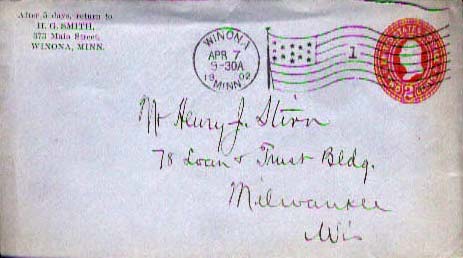 After 5 days, return to
H. G. SMITH,
373 Main Street,
WINONA, MINN.
WINONA
APR 7
5-30A
1902
MINN.
1
2
Mr Henry J. Stirn
78 Loan & Trust Bldg.
Milwaukee
Wis